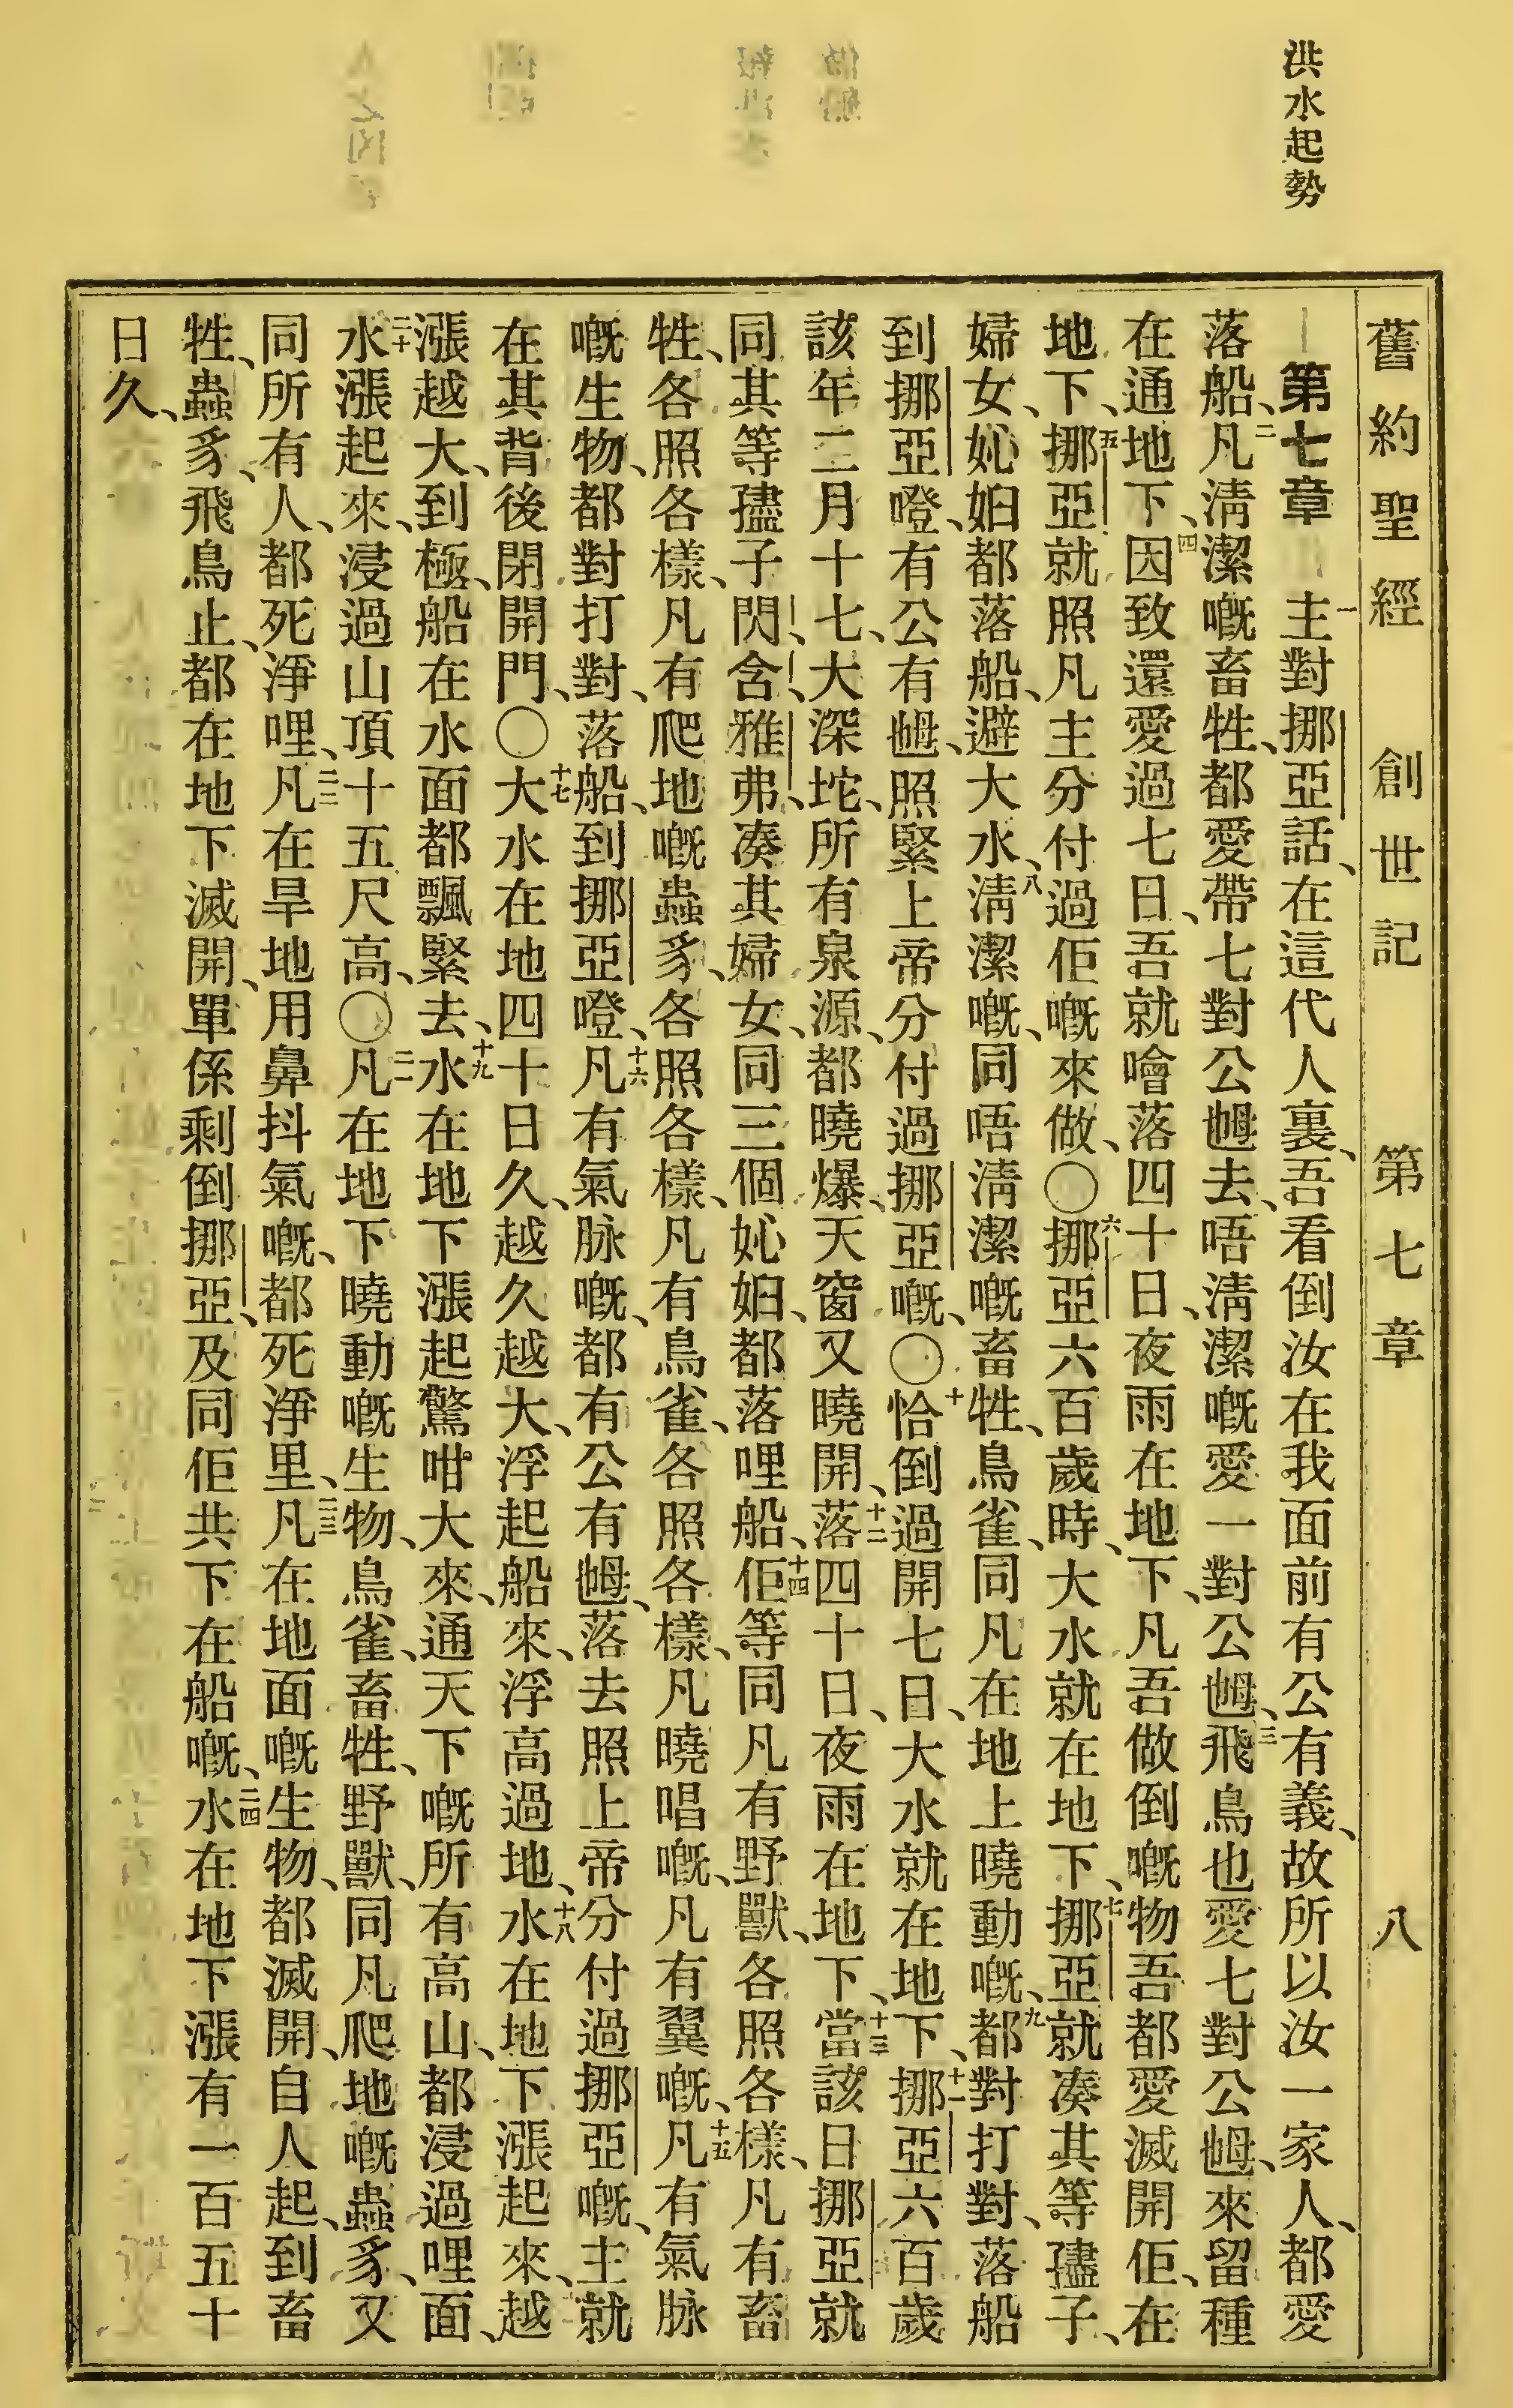 洪水起勢
舊約聖經 創世記 第七章 八
第七章 一主對挪亞話、在這代人裏、吾看倒汝在我面前有公有義、故所以汝一家人、都愛
落船、二凡淸潔嘅畜牲、都愛帶七對公乸去、唔淸潔嘅愛一對公乸、三飛鳥也愛七對公乸、來留種
在通地下、四因致還愛過七日、吾就噲落四十日、夜雨在地下、凡吾做倒嘅物吾都愛滅開佢、在
地下、五挪亞就照凡主分付過佢嘅來做、〇六挪亞六百歲時、大水就在地下、七挪亞就凑其等𡥧子、
婦女、㚰㚼都落船、避大水、八淸潔嘅、同唔淸潔嘅畜牲、鳥雀、同凡在地上曉動嘅、九都對打對、落船
到挪亞噔、有公有乸、照緊上帝分付過挪亞嘅、〇十恰倒過開七日、大水就在地下、十一挪亞六百歲
該年二月十七、大深坨、所有泉源、都曉爆、天窗又曉開、十二落四十日、夜雨在地下、十三當該日挪亞就
同其等𡥧子閃、含、雅弗、凑其婦女、同三個㚰㚼、都落哩船、十四佢等同凡有野獸、各照各樣、凡有畜
牲、各照各樣、凡有爬地嘅蟲豸、各照各樣、凡有鳥雀、各照各樣、凡曉唱嘅、凡有翼嘅、十五凡有氣脉
嘅生物、都對打對、落船、到挪亞噔、十六凡有氣脉嘅、都有公有乸、落去照上帝分付過挪亞嘅、主就
在其背後閉開門、〇十七大水在地四十日久、越久越大、浮起船來、浮高過地、十八水在地下漲起來、越
漲越大、到極、船在水面都飄緊去、十九水在地下漲起驚咁大來、通天下嘅所有高山、都浸過哩面、
二十水漲起來、浸過山頂十五尺高、〇二一凡在地下曉動嘅生物、鳥雀、畜牲、野獸、同凡爬地嘅蟲豸、又
同所有人、都死淨哩、二二凡在旱地用鼻抖氣嘅、都死淨里、二三凡在地面嘅生物、都滅開、自人起、到畜
牲、蟲豸、飛鳥止、都在地下滅開、單係剩倒挪亞、及同佢共下在船嘅、二四水在地下漲有一百五十
日久、